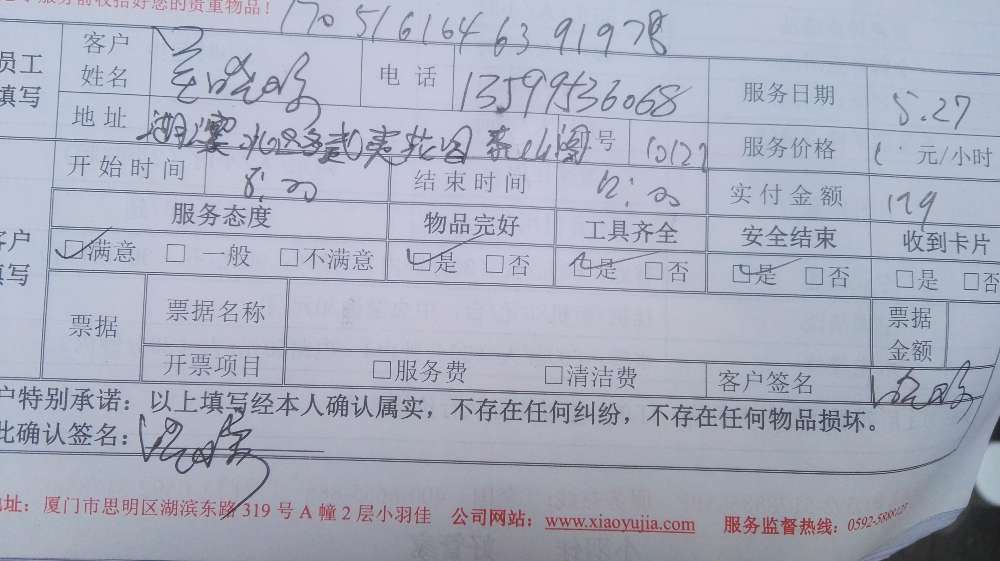 服务前收拾好您的贵重物品!
17051616463 91978
员工填写
客户姓名 电话 13599536068 服务日期 5.27
地址 号 服务价格 元/小时
开始时间 8:00 结束时间 12:00 实付金额 129
客户填写
服务态度 物品完好 工具齐全 安全结束 收到卡片
☑满意 □一般 □不满意 ☑是 □否 ☑是 □否 ☑是 □否 □是 □否
票据 票据名称 票据金额
开票项目 □服务费 □清洁费 客户签名
户特别承诺：以上填写经本人确认属实，不存在任何纠纷，不存在任何物品损坏。
此确认签名：
地址：厦门市思明区湖滨东路319号A幢2层小羽佳 公司网站：www.xiaoyujia.com 服务监督热线：0592-